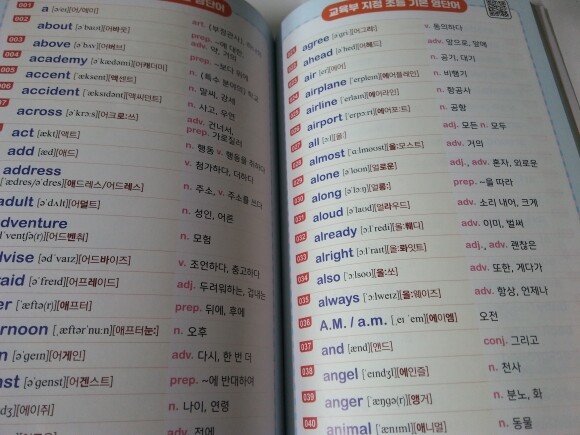 영단어
001 a [ə/eɪ][어/에이] art. (부정관사),
about [əˈbaʊt][어바웃] prep. ~에 대한,
above [əˈbʌv][어버브] adv. 약, 거의
004 academy [əˈkædəmi][어캐더미] prep. ~보다 위에
005 accent [ˈæksent][액센트] n. (특수 분야의) 학교
accident [ˈæksɪdənt][액씨던트] n. 말씨, 강세
007 across [əˈkrɔ:s][어크로:쓰] n. 사고, 우연
adv. 건너서,
act [ækt][액트] prep. 가로질러
add [æd][애드] n. 행동 v. 행동을 취하다
address v. 첨가하다, 더하다
[ˈædres/əˈdres][애드레스/어드레스] n. 주소, v. 주소를 쓰다
adult [əˈdʌlt][어덜트] n. 성인, 어른
dventure
[ədˈventʃə(r)][어드벤춰] n. 모험
dvise [ədˈvaɪz][어드바이즈] v. 조언하다, 충고하다
raid [əˈfreɪd][어프레이드] adj. 두려워하는, 겁내는
er [ˈæftə(r)][애프터] prep. 뒤에, 후에
ernoon [ˌæftərˈnu:n][애프터눈:] n. 오후
n [əˈgeɪn][어게인] adv. 다시, 한 번 더
nst [əˈgenst][어겐스트] prep. ~에 반대하여
[eɪdʒ][에이쥐] n. 나이, 연령
adv. 전에
교육부 지정 초등 기본 영단어
agree [əˈgri:][어그리:] v. 동의하다
ahead [əˈhed][어헤드] adv. 앞으로, 앞에
air [er][에어] n. 공기, 대기
airplane [ˈerpleɪn][에어플레인] n. 비행기
airline [ˈerlaɪn][에어라인] n. 항공사
airport [ˈerpɔ:rt][에어포:트] n. 공항
027 all [ɔ:l][올:] adj. 모든 n. 모두
028 almost [ˈɔ:lmoʊst][올:모스트] adv. 거의
029 alone [əˈloʊn][얼로운] adj., adv. 혼자, 외로운
030 along [əˈlɔ:ŋ][얼롱:] prep. ~을 따라
031 aloud [əˈlaʊd][얼라우드] adv. 소리 내어, 크게
032 already [ɔ:lˈredi][올:뤠디] adv. 이미, 벌써
033 alright [ɔ:lˈraɪt][올:롸잇트] adj., adv. 괜찮은
034 also [ˈɔ:lsoʊ][올:쏘] adv. 또한, 게다가
035 always [ˈɔ:lweɪz][올:웨이즈] adv. 항상, 언제나
036 A.M. / a.m. [ˌeɪ ˈem][에이엠] 오전
037 and [ænd][앤드] conj. 그리고
038 angel [ˈeɪndʒl][에인즐] n. 천사
039 anger [ˈæŋgə(r)][앵거] n. 분노, 화
040 animal [ˈænɪml][애니멀] n. 동물